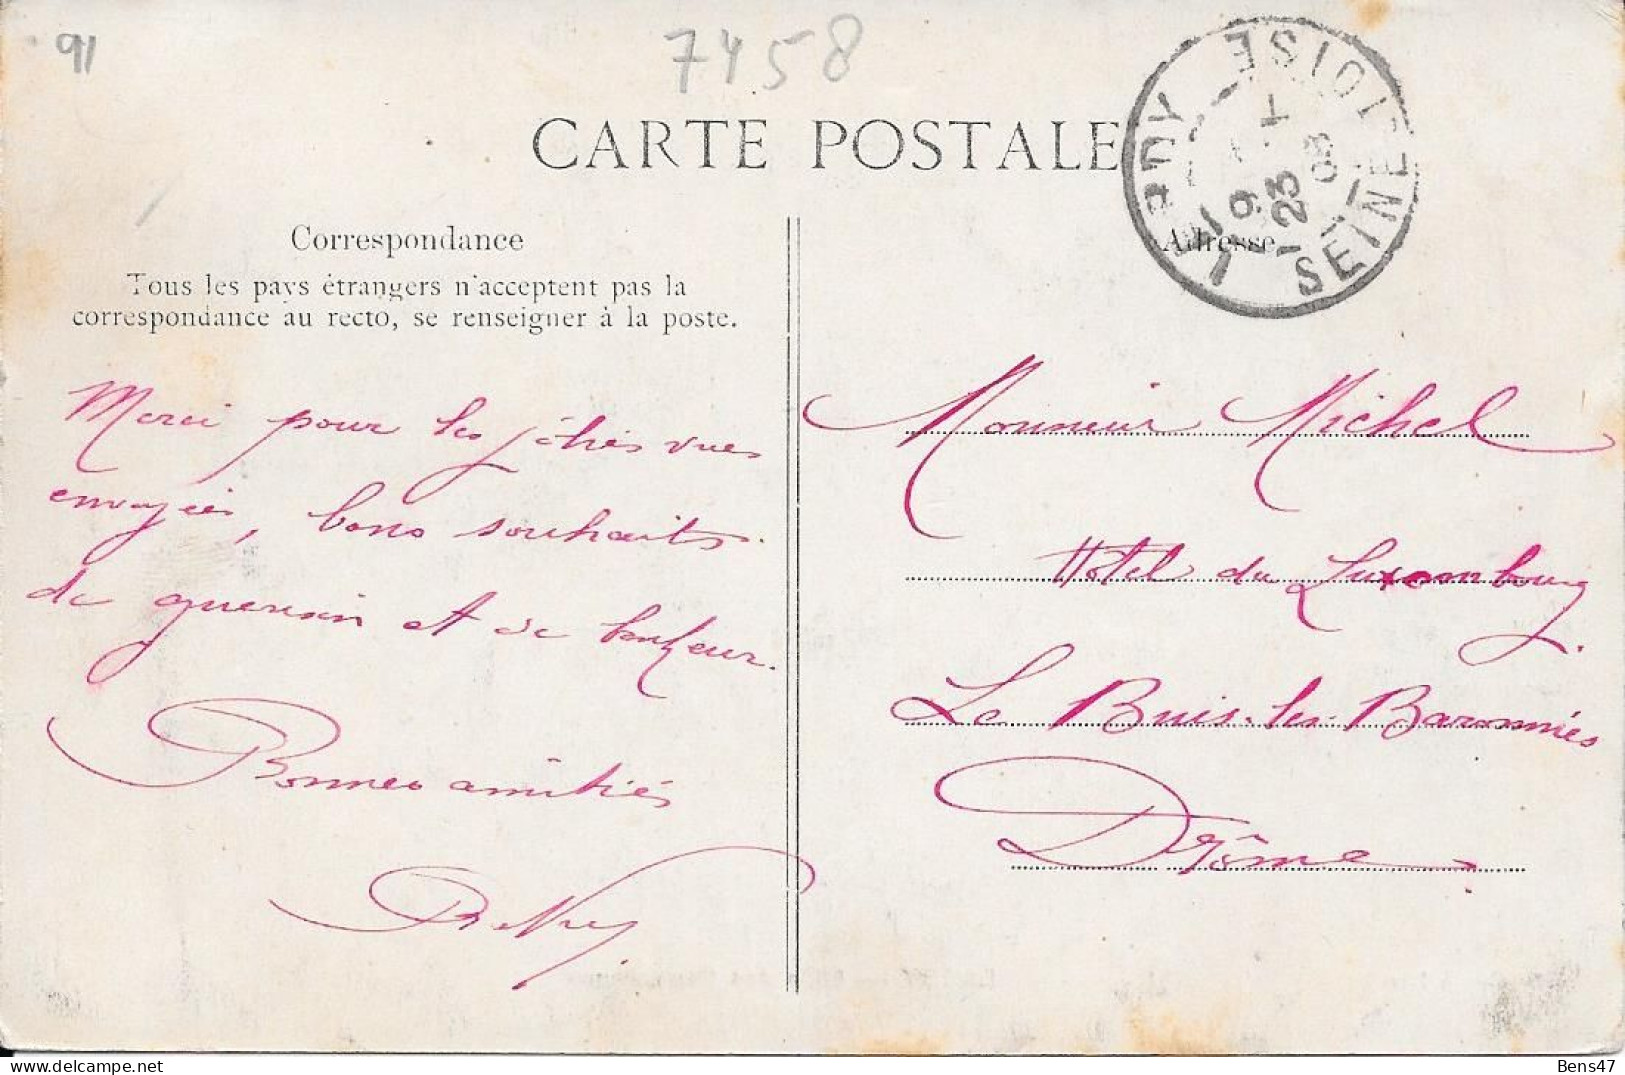 91
7458
CARTE POSTALE
LARDY SEINE-ET-OISE
9
23
08
Correspondance
Adresse
Tous les pays étrangers n'acceptent pas la
correspondance au recto, se renseigner à la poste.
Merci pour les jolies vues
envoyées, bons souhaits
de guérison et de bonheur.
Bonnes amitiés
Monsieur Michel
Hôtel du Luxembourg.
Le Buis-les-Baronnies
Drôme
Bens47